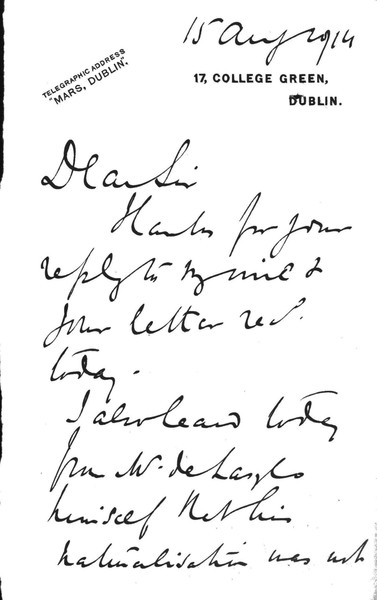 15 Aug 1914
TELEGRAPHIC ADDRESS
"MARS, DUBLIN."
17, COLLEGE GREEN,
DUBLIN.
Dear Sir
Thanks for your
reply to my wire &
your letter recd.
today.
I also heard today
from Mr. de Laszlo
himself that his
naturalisation was not